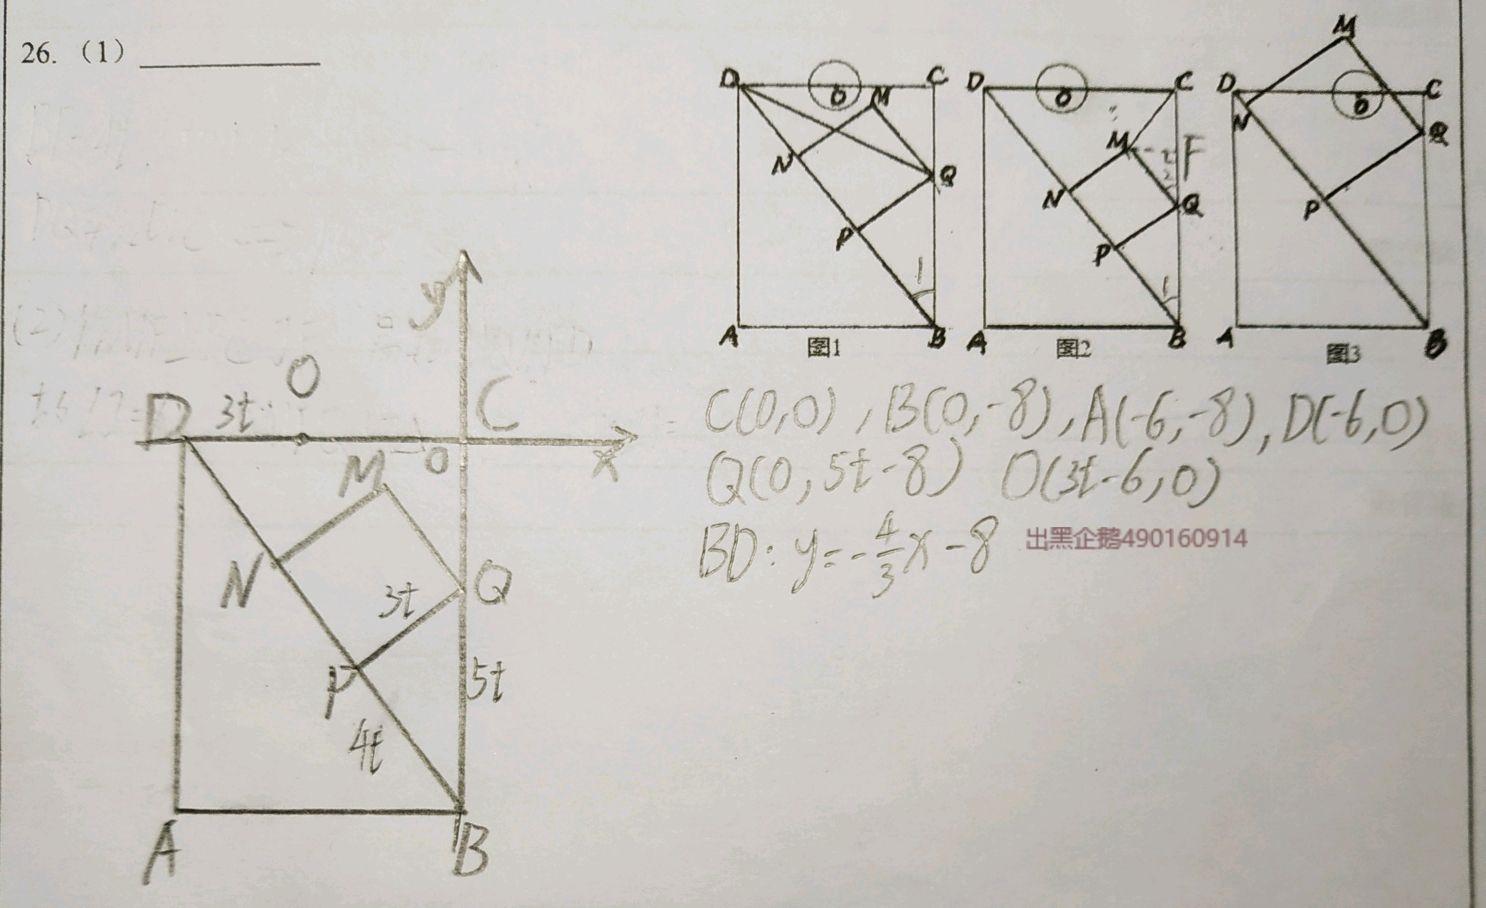 26.（1）
D O C M N Q P 1 A B 图1
D O C M F N Q P 1 A B 图2
M D O C N Q P A B 图3
y
O
D 3t C
M O x
N 3t Q
P 5t
4t
A B
C(0,0), B(0,-8), A(-6,-8), D(-6,0)
Q(0, 5t-8) O(3t-6,0)
BD: y=-4/3x-8 出黑企鹅490160914